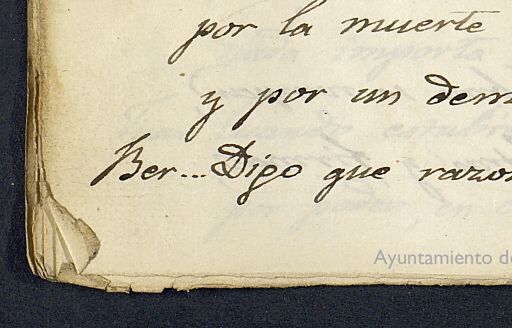 por la muerte
y por un dem
Ber... Digo que razo
Ayuntamiento de